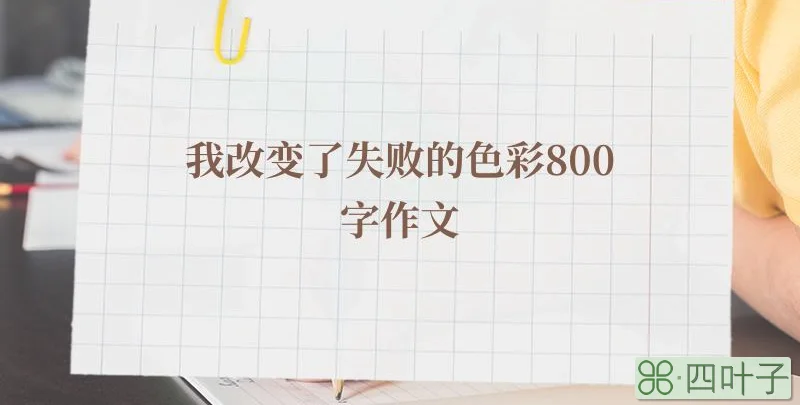 我改变了失败的色彩800
字作文
四叶子